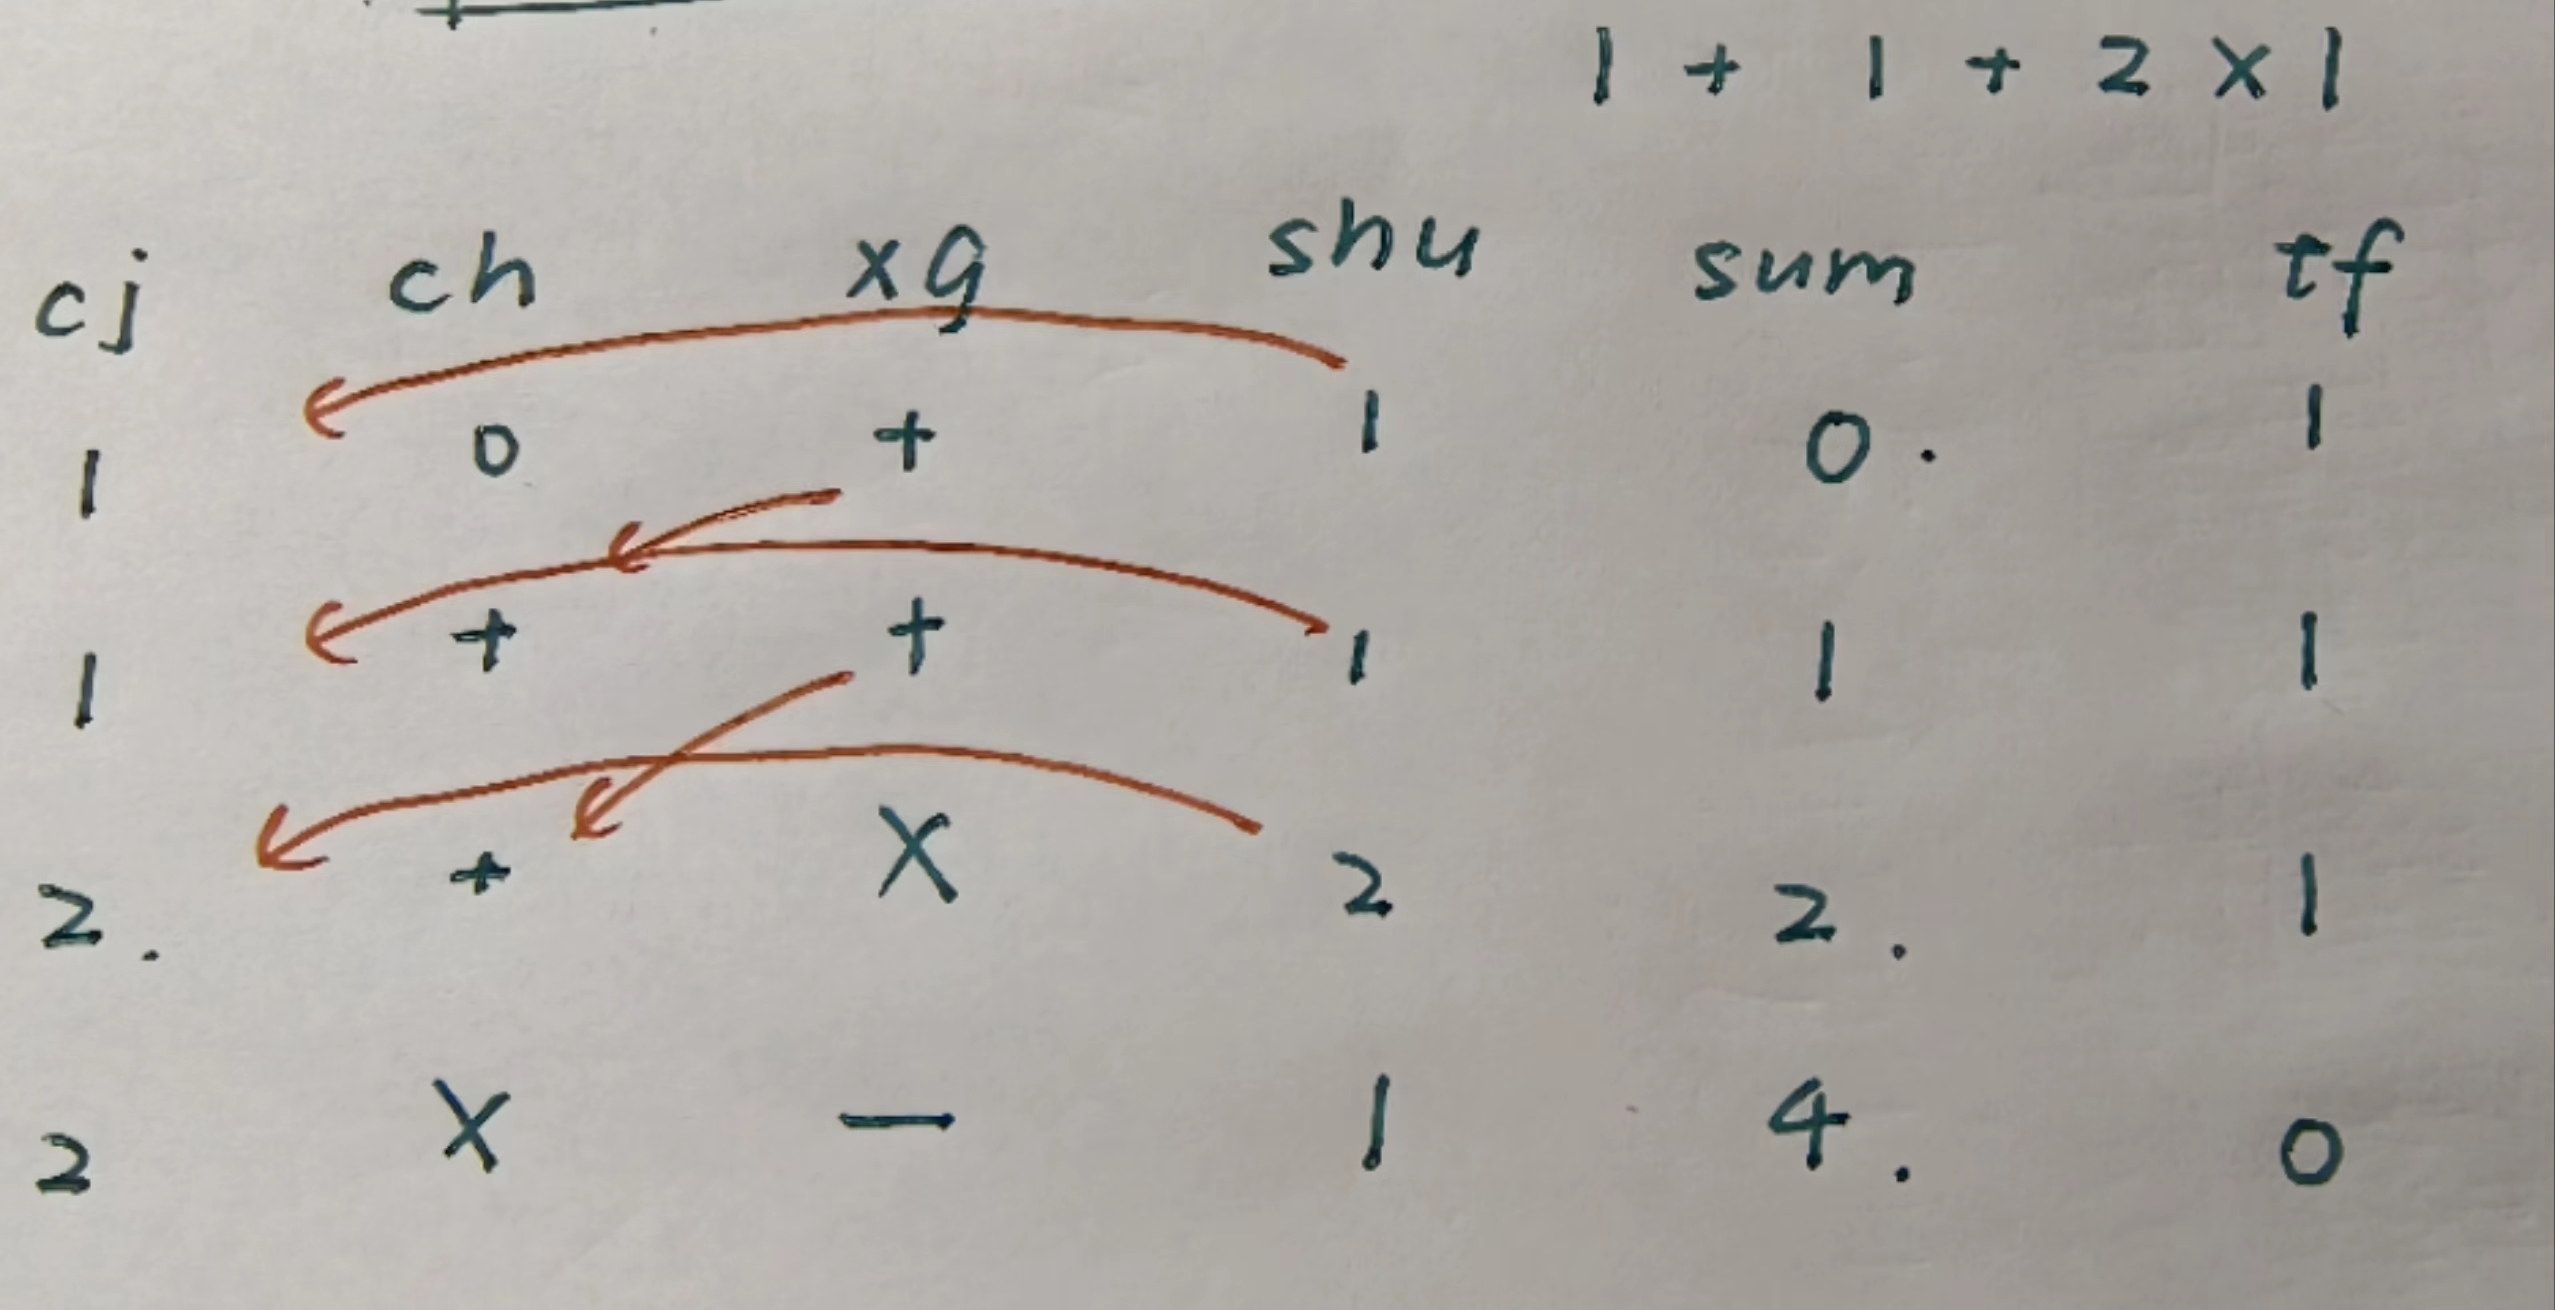 1 + 1 + 2 × 1
cj ch xg shu sum tf
1 0 + 1 0. 1
1 + + 1 1 1
2. + × 2 2. 1
2 × — 1 4. 0